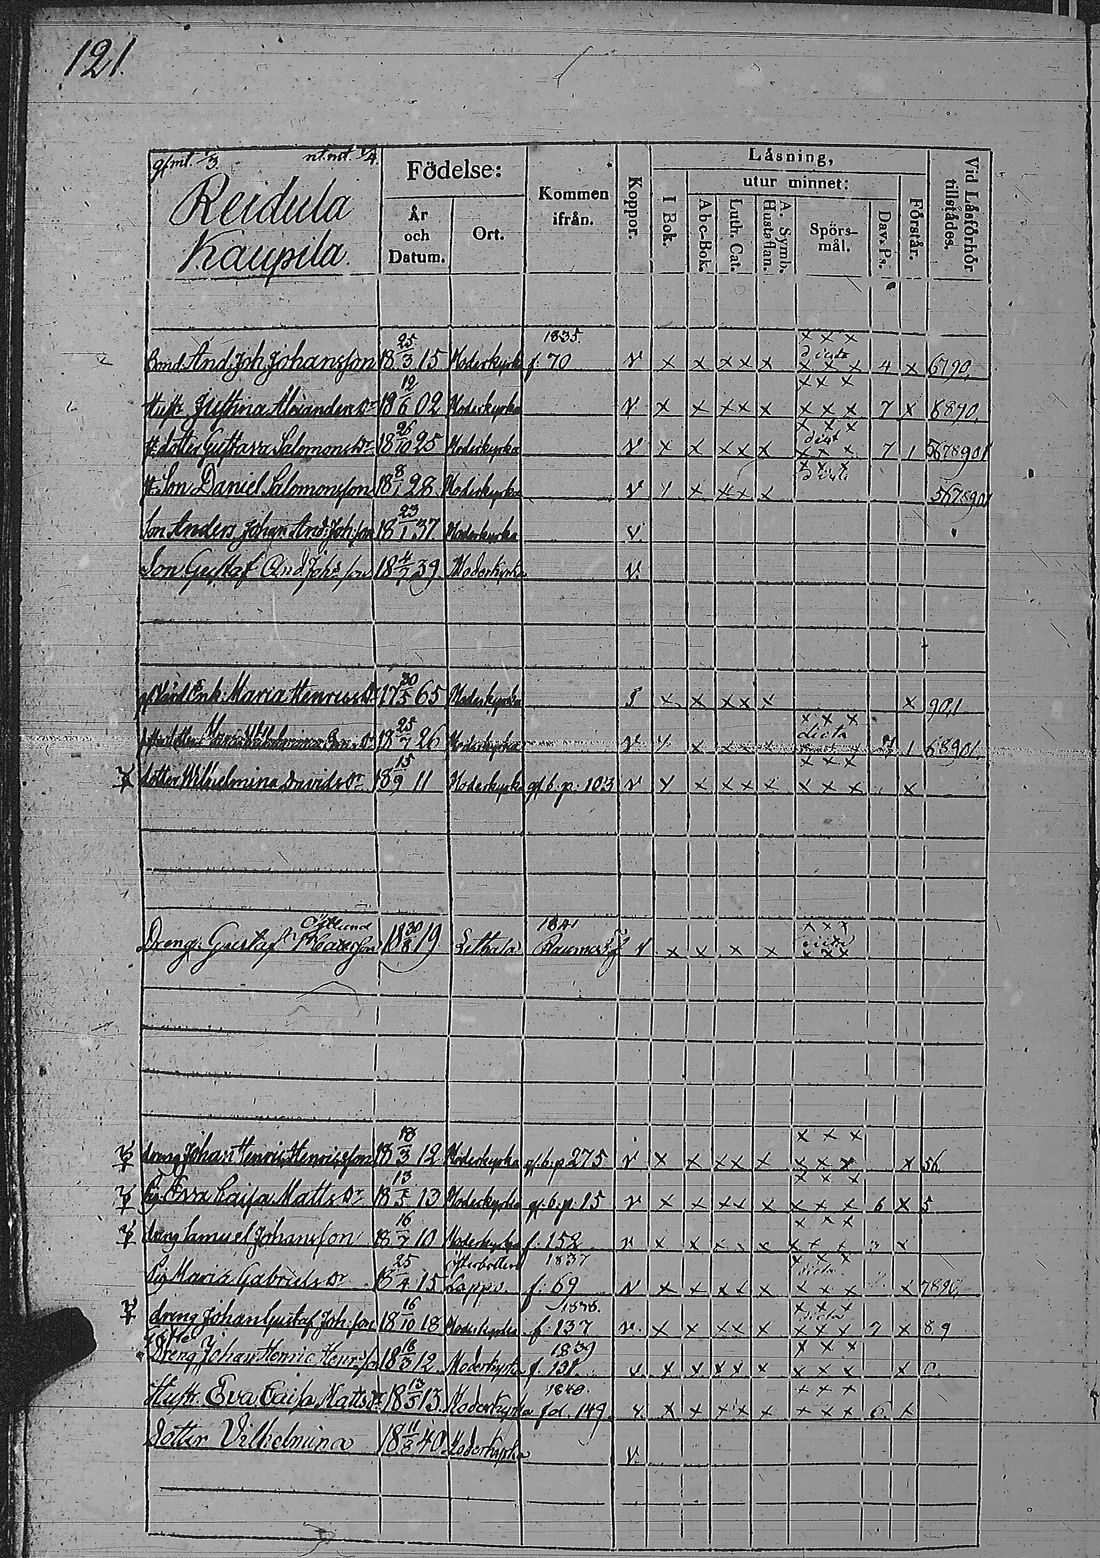 121.
gl mt. 1/3. nt. mt. 1/4.
Reidula
Kaupila.
Födelse:
År och Datum.
Ort.
Kommen ifrån.
Koppor.
Läsning,
I Bok.
utur minnet:
Abc-Bok.
Luth. Cat.
A. Symb. Hustaflan.
Spörs-mål.
Dav. Ps.
Förstår.
Vid Läsförhör tillstädes.
Bond. And. Joh. Johansson 18 25/3 15 Moderkyrka 1835. f. 70 v x x xx x x x x dicto x x x 4 x 6790,
Hustr. Justina Alexanders Dr 18 12/6 02 Moderkyrka v x x xx x x x x x x x 7 x 6890,
H. dotter Gustava Salomons Dr 18 26/10 25 Moderkyrka v x x xx x x x x dict x x x 7 1 678901
H. Son Daniel Salomonsson 18 8/1 28 Moderkyrka v x x xx x x x x 5678901
Son Anders Johan And. Joh. son 18 23/1 37 Moderkyrka v
Son Gustaf And. Joh. son 18 4/7 39 Moderkyrka v.
Enk. Maria Henrics Dr 17 20/5 65 Moderkyrka 5 x x xx x x 901
18 25/7 26 Moderkyrka v x x xx x x x x dicta x x x 1 68901,
dotter Wilhelmina Davids Dr 18 15/9 11 Moderkyrka gl. b. p. 103 v x x xx x x x x x x x x
Dreng. Gustaf Östlund 18 30/8 19 Letala 1841 Raumo v x x x x x x x dicta x x x
dreng Johan Henric Henricsson 18 18/3 12 Moderkyrka gl. b. p 275 v x x xx x x x x x x x x 56
Pig. Eva Caisa Matts Dr 18 13/5 13 Moderkyrka gl. b. p. 15 v x x xx x x x x x x x 6 x 5
dreng Samuel Johansson 18 16/7 10 Moderkyrka f. 152 v x x xx x x x x x x x x
Pig Maria Gabriels Dr 18 25/4 15 Österbotten Lappo. 1837 f. 69 v x x xx x x x x dicta x x x x 7890,
dreng Johan Gustaf Joh. son 18 16/10 18 Moderkyrka 1838. f. 137 v. x x xx x x x x dicta x x x 7 x 89
Dreng Johan Henric Henrs son 18 18/3 12 Moderkyrka 1839 f. 131. v x x xx x x x x x x x x
Hustr. Eva Caisa Matts Dr 18 13/5 13 Moderkyrka 1840. fol. 149. v x x xx x x x x x x x 6. x
Dotter Vilhelmina 18 11/5 40 Moderkyrka v.